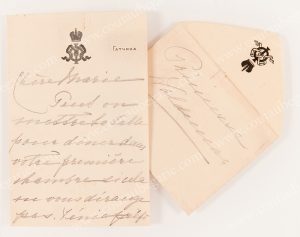 Гатчина
Chère Marie
Peut on
mettre la table
pour dîner dans
votre première
chambre si cela
ne vous dérange
pas. Xénie
Princesse